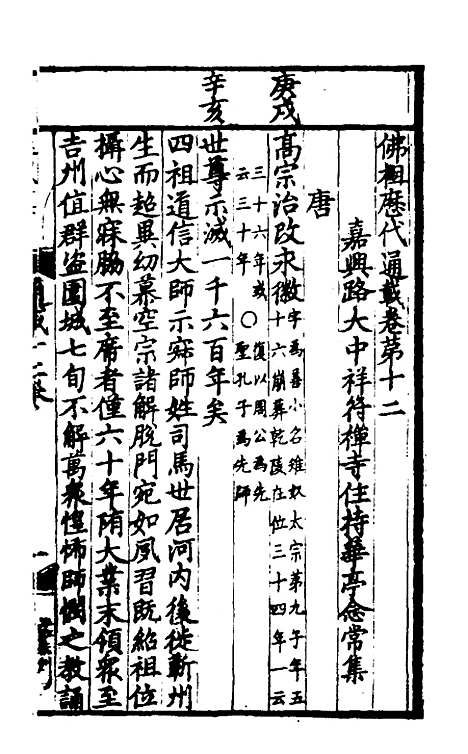 佛祖歷代通載卷第十二
嘉興路大中祥符禪寺住持華亭念常集
唐
庚戌
高宗治改永徽
字爲善小名雉奴太宗第九子年五
十六崩葬乾陵在位三十四年一云
三十六年或
云三十年
○
復以周公爲先
聖孔子爲先師
辛亥
世尊示滅一千六百年矣
四祖道信大師示寂師姓司馬世居河内後徙蘄州
生而超異幼慕空宗諸解脱門宛如夙習既紹祖位
攝心無寐脇不至席者僅六十年隋大業末領眾至
吉州值群盗圍城七旬不解萬眾惶怖師憫之教誦